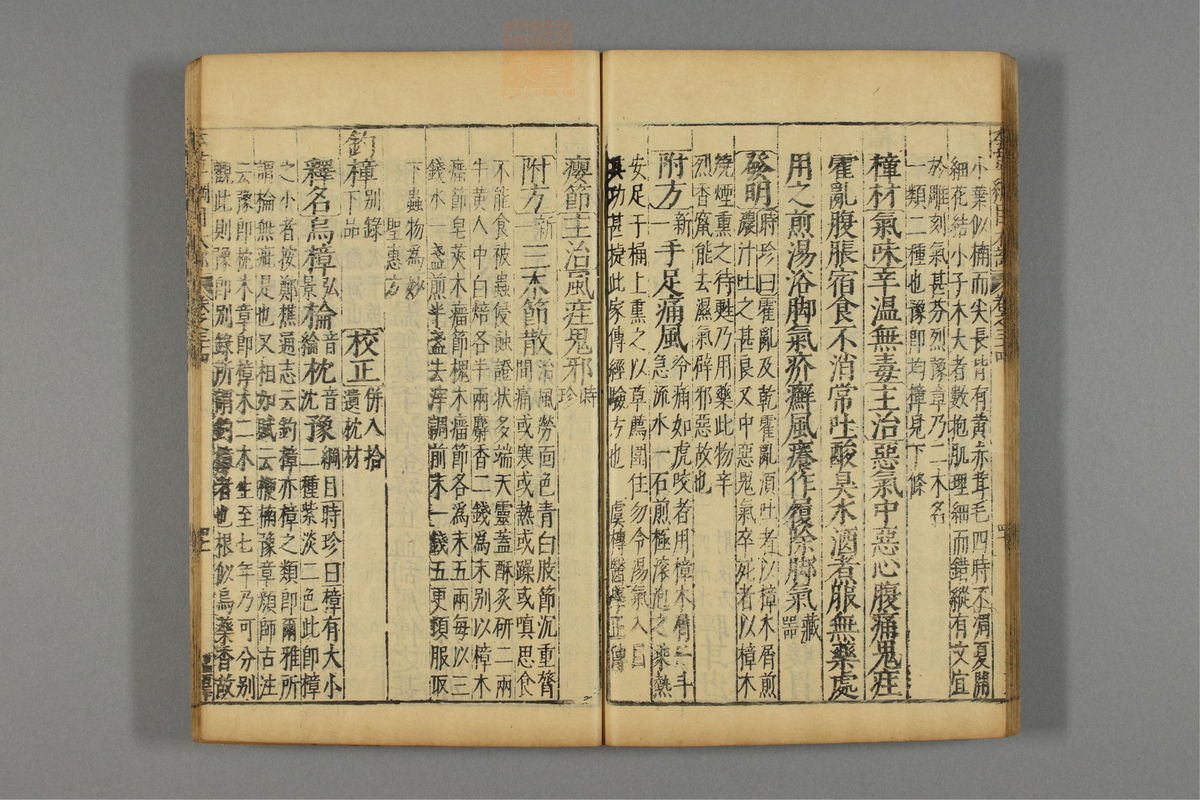 小葉似楠而尖長皆有黃赤茸毛四時不凋夏開
細花結小子木大者數抱肌理細而錯縱有文宜
於雕刻氣甚芬烈豫章乃二木名
一類二種也豫即釣樟見下條
樟材氣味辛溫無毒主治惡氣中惡心腹痛鬼疰
霍亂腹脹宿食不消常吐酸臭水酒煮服無藥處
用之煎湯浴脚氣疥癬風癢作履除脚氣藏器
發明時珍曰霍亂及乾霍亂須吐者以樟木屑煎
濃汁吐之甚良又中惡鬼氣卒死者以樟木
燒煙熏之待甦乃用藥此物辛
烈香竄能去濕氣辟邪惡故也
附方新一手足痛風冷痛如虎咬者用樟木屑一斗
急流水一石煎極滾泡之乘熱
安足于桶上熏之以草薦圍住勿令湯氣入目
其功甚捷此家傳經驗方也虞摶醫學正傳
癭節主治風疰鬼邪時珍
附方新一三木節散治風勞面色青白肢節沉重膂
間痛或寒或熱或躁或嗔思食
不能食被蟲侵蝕證狀多端天靈蓋酥炙研二兩
牛黃人中白焙各半兩麝香二錢為末别以樟木
瘤節皂莢木瘤節槐木瘤節各為末五兩每以三
錢水一盞煎半盞去滓調前末一錢五更頓服取
下蟲物為妙
聖惠方
釣樟别錄下品校正併入拾遺枕材
釋名烏樟弘景棆音綸枕音沈豫綱目時珍曰樟有大小
二種紫淡二色此即樟
之小者按鄭樵通志云釣樟亦樟之類即爾雅所
謂棆無疵是也又相如賦云楩楠豫章顏師古注
云豫即枕木章即樟木二木生至七年乃可分别
觀此則豫即别錄所謂釣樟者也根似烏藥香故